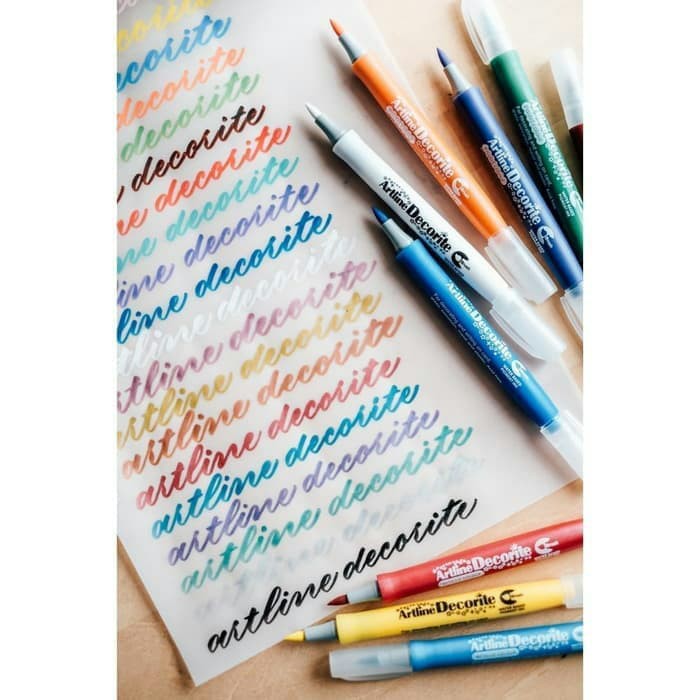 decorite
decorite
decorite
decorite
decorite
decorite
ne decorite
ne decorite
ine decorite
line decorite
artline decorite
artline decorite
artline decorite
artline decorite
artline decorite
artline decorite
artline decorite
artline decorite
artline decorite
artline decorite
Artline Decorite
Artline Decorite
Artline Decorite
Artline Decorite
Artline Decorite
Artline Decorite
Artline Decorite
Artline Decorite